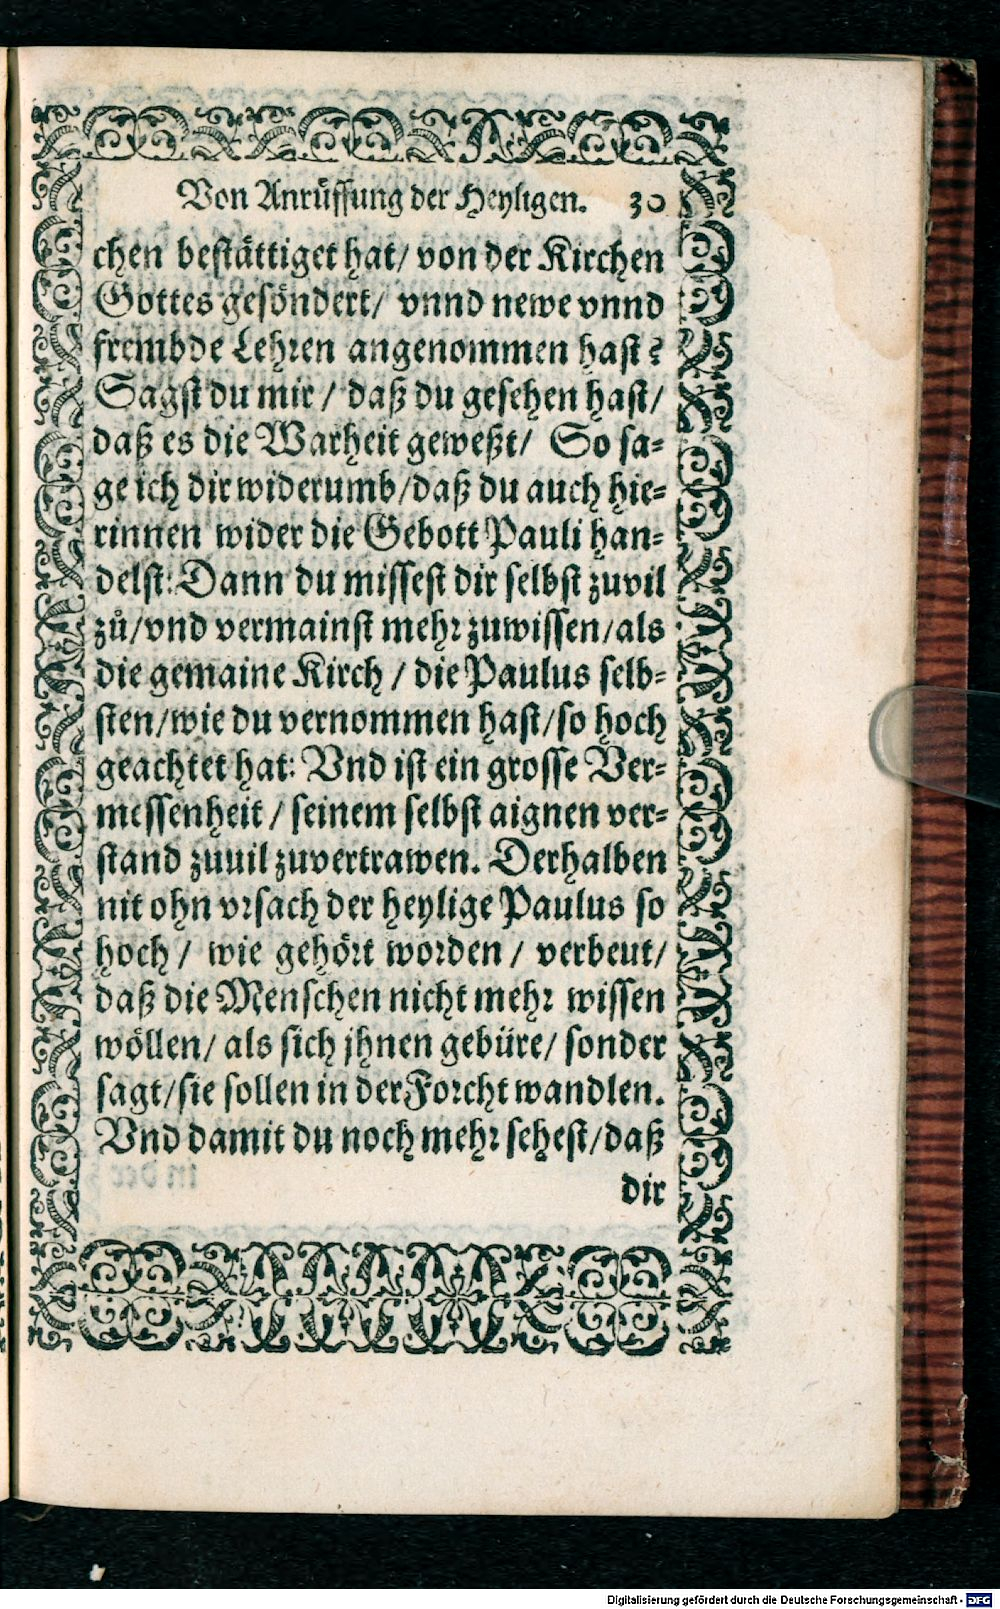 Von Anrüffung der Heyligen. 30
chen bestättiget hat/ von der Kirchen
Gottes gesöndert/ vnnd newe vnnd
frembde Lehren angenommen hast?
Sagst du mir/ daß du gesehen hast/
daß es die Warheit geweßt/ So sa-
ge ich dir widerumb/daß du auch hie-
rinnen wider die Gebott Pauli han-
delst: Dann du missest dir selbst zuvil
zů/vnd vermainst mehr zuwissen/als
die gemaine Kirch/ die Paulus selb-
sten/wie du vernommen hast/so hoch
geachtet hat: Vnd ist ein grosse Ver-
messenheit/ seinem selbst aignen ver-
stand zuuil zuvertrawen. Derhalben
nit ohn vrsach der heylige Paulus so
hoch/ wie gehört worden/ verbeut/
daß die Menschen nicht mehr wissen
wöllen/ als sich jhnen gebüre/ sonder
sagt/sie sollen in der Forcht wandlen.
Vnd damit du noch mehr sehest/daß
dir
Digitalisierung gefördert durch die Deutsche Forschungsgemeinschaft - DFG